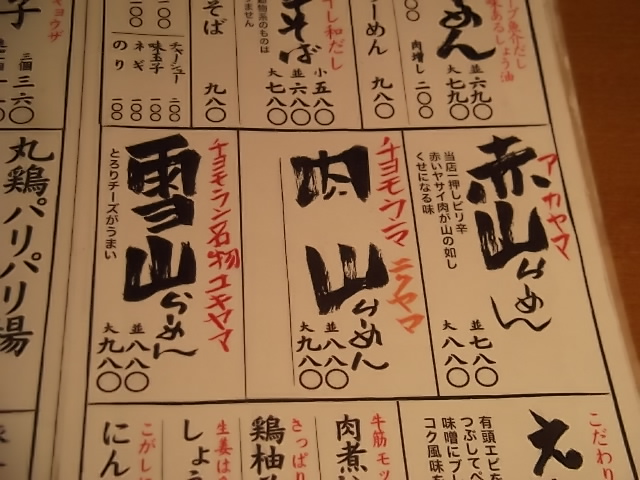 めん
味あるしょう油
並 六九〇
大 七九〇
らーめん
肉増し 二〇〇
九八〇
干し和だし
そば
小 五八〇
並 六八〇
大 七八〇
動物系のものは
そば
九八〇
チャーシュー 二〇〇
味玉子 一〇〇
ネギ 一〇〇
のり 一〇〇
三個 三六〇
アカヤマ
赤山らーめん
当店一押しピリ辛
赤いヤサイ肉が山の如し
くせになる味
並 七八〇
大 八八〇
チヨモウンマ ニクヤマ
肉山らーめん
並 八八〇
大 九八〇
チョモラン名物ユキヤマ
雪山らーめん
とろりチーズがうまい
並 八八〇
大 九八〇
丸鶏パリパリ揚
こだわり
え
有頭エビを
つぶしてペ
味噌にブレ
コク風味を
牛筋モッ
肉煮
さっぱり
鶏柚
生姜は
しょ
こがし
にん